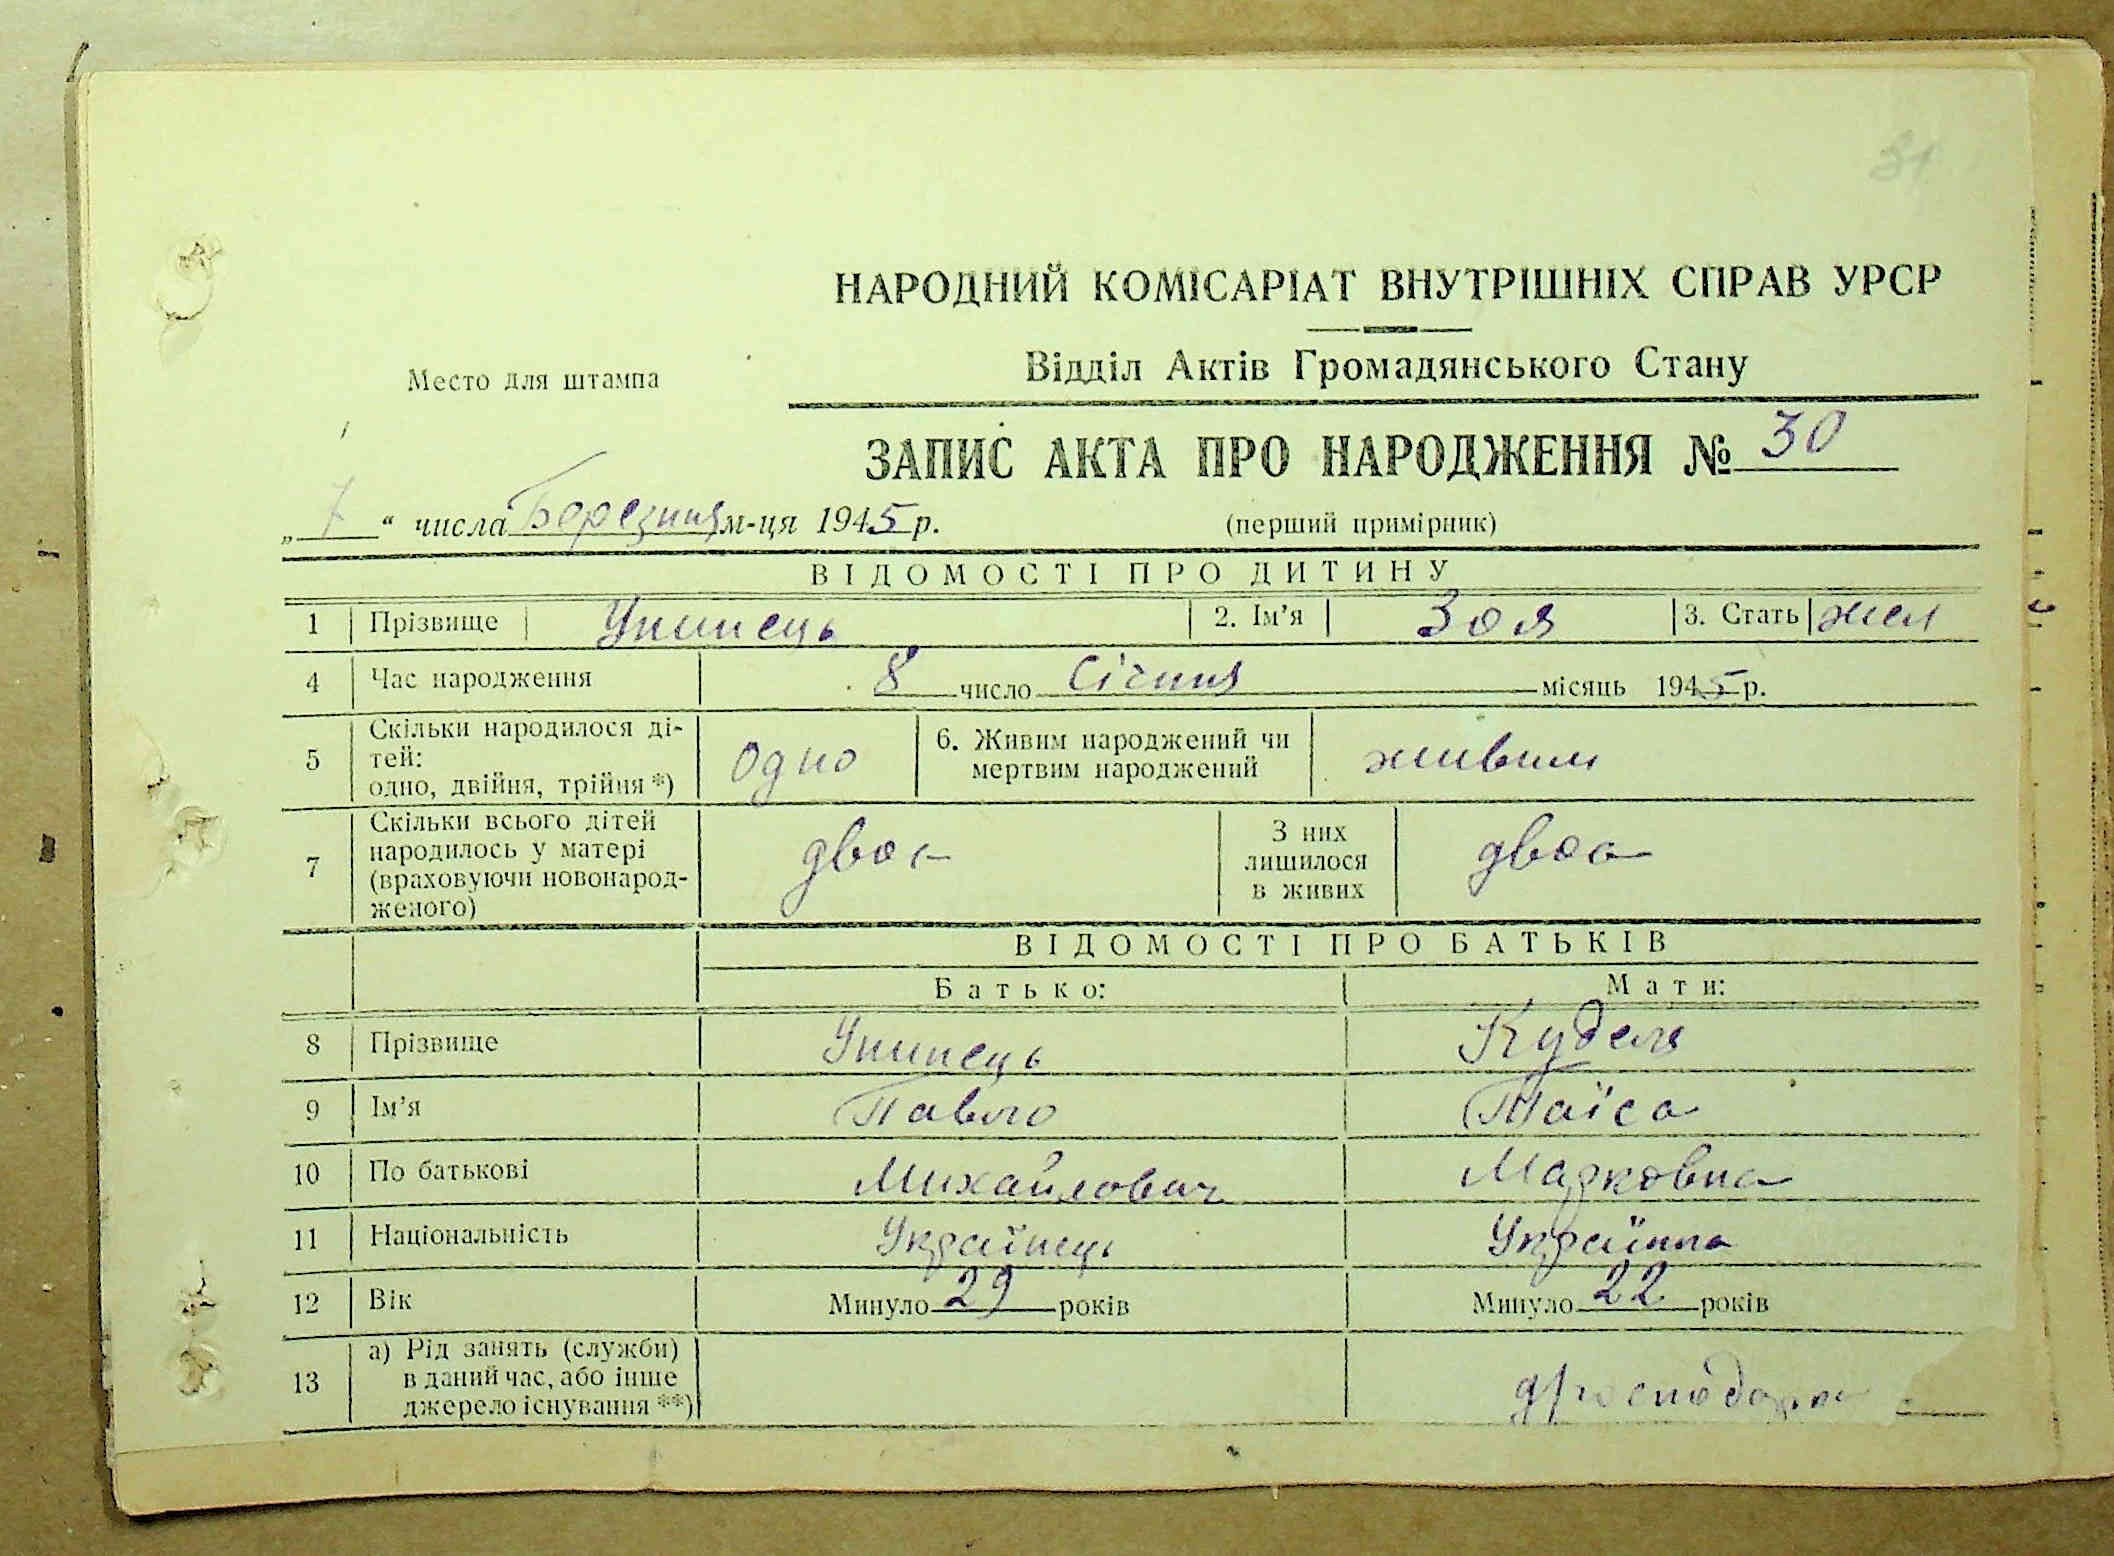 31
НАРОДНИЙ КОМІСАРІАТ ВНУТРІШНІХ СПРАВ УРСР
Место для штампа
Відділ Актів Громадянського Стану
ЗАПИС АКТА ПРО НАРОДЖЕННЯ № 30
„ 7 “ числа Березня м-ця 1945 р.
(перший примірник)
ВІДОМОСТІ ПРО ДИТИНУ
1 Прізвище Упинець 2. Ім’я Зоя 3. Стать жен
4 Час народження 8 число Січня місяць 1945 р.
5 Скільки народилося ді-
тей:
одно, двійня, трійня *) Одно 6. Живим народжений чи
мертвим народжений живим
7 Скільки всього дітей
народилось у матері
(враховуючи новонарод-
женого) двоє З них
лишилося
в живих двоє
ВІДОМОСТІ ПРО БАТЬКІВ
Батько: Мати:
8 Прізвище Упинець Кудела
9 Ім’я Павло Таїса
10 По батькові Михайлович Марковна
11 Національність Українець Українка
12 Вік Минуло 29 років Минуло 22 років
13 а) Рід занять (служби)
в даний час, або інше
джерело існування **)